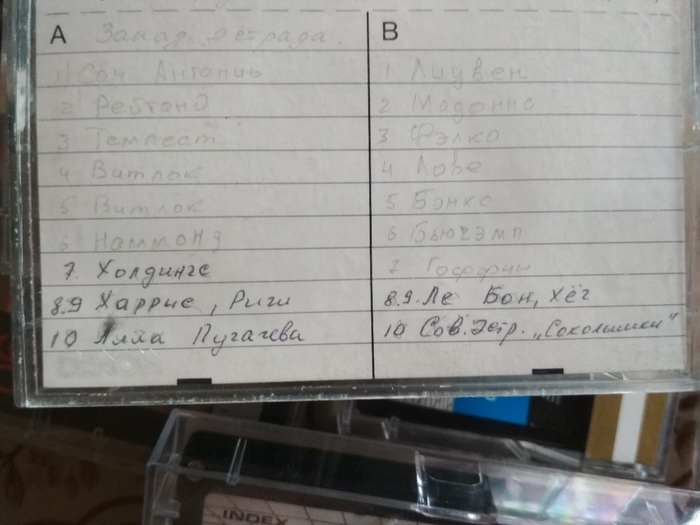 A Запад. эстрада.
1 Сан Антонио
2 Рейтанд
3 Темпест
4 Витлок
5 Витлок
6 Наммонд
7. Холдингс
8.9 Харрис, Риги
10 Алла Пугачева
B
1 Лиувен
2 Мадонна
3 Фэлко
4 Лове
5 Бэнкс
6 Бьючэмп
7 Гоффин
8.9. Ле Бон, Хёг
10 Сов. Эстр. „Сокольники"
INDEX